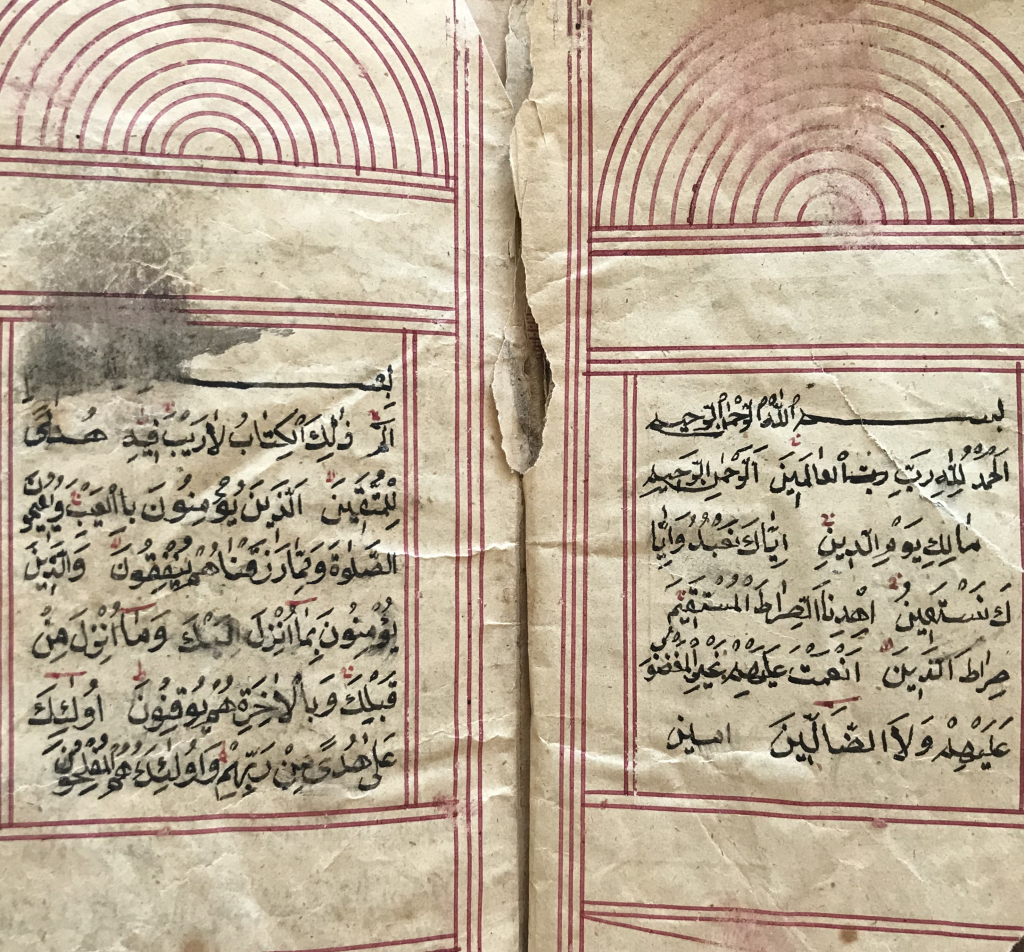 بســـــم الله الرحمن الرحيم
اَلْحَمْدُ لِلّٰهِ رَبِّ الْعَالَمِينَ اَلرَّحْمٰنِ الرَّحِيمِ
مَالِكِ يَوْمِ الدِّينِ اِيَّاكَ نَعْبُدُ وَاِيَّا
كَ نَسْتَعِينُ اِهْدِنَا الصِّرَاطَ الْمُسْتَقِيمَ
صِرَاطَ الَّذِينَ اَنْعَمْتَ عَلَيْهِمْ غَيْرِ الْمَغْضُوبِ
عَلَيْهِمْ وَلَا الضَّالِّينَ امين
بســـــم
الٓمٓ ذٰلِكَ الْكِتَابُ لَارَيْبَ فِيهِ هُدًى
لِلْمُتَّقِينَ اَلَّذِينَ يُؤْمِنُونَ بِاالْغَيْبِ وَيُقِيمُونَ
الصَّلٰوةَ وَمِمَّا رَزَقْنَاهُمْ يُنْفِقُونَ وَالَّذِينَ
يُؤْمِنُونَ بِمَا اُنْزِلَ اِلَيْكَ وَمَا اُنْزِلَ مِنْ
قَبْلِكَ وَبِاْلاٰخِرَةِ هُمْ يُوقِنُونَ اُولٰئِكَ
عَلٰى هُدًى مِنْ رَبِّهِمْ وَاُولٰئِكَ هُمُ الْمُفْلِحُونَ